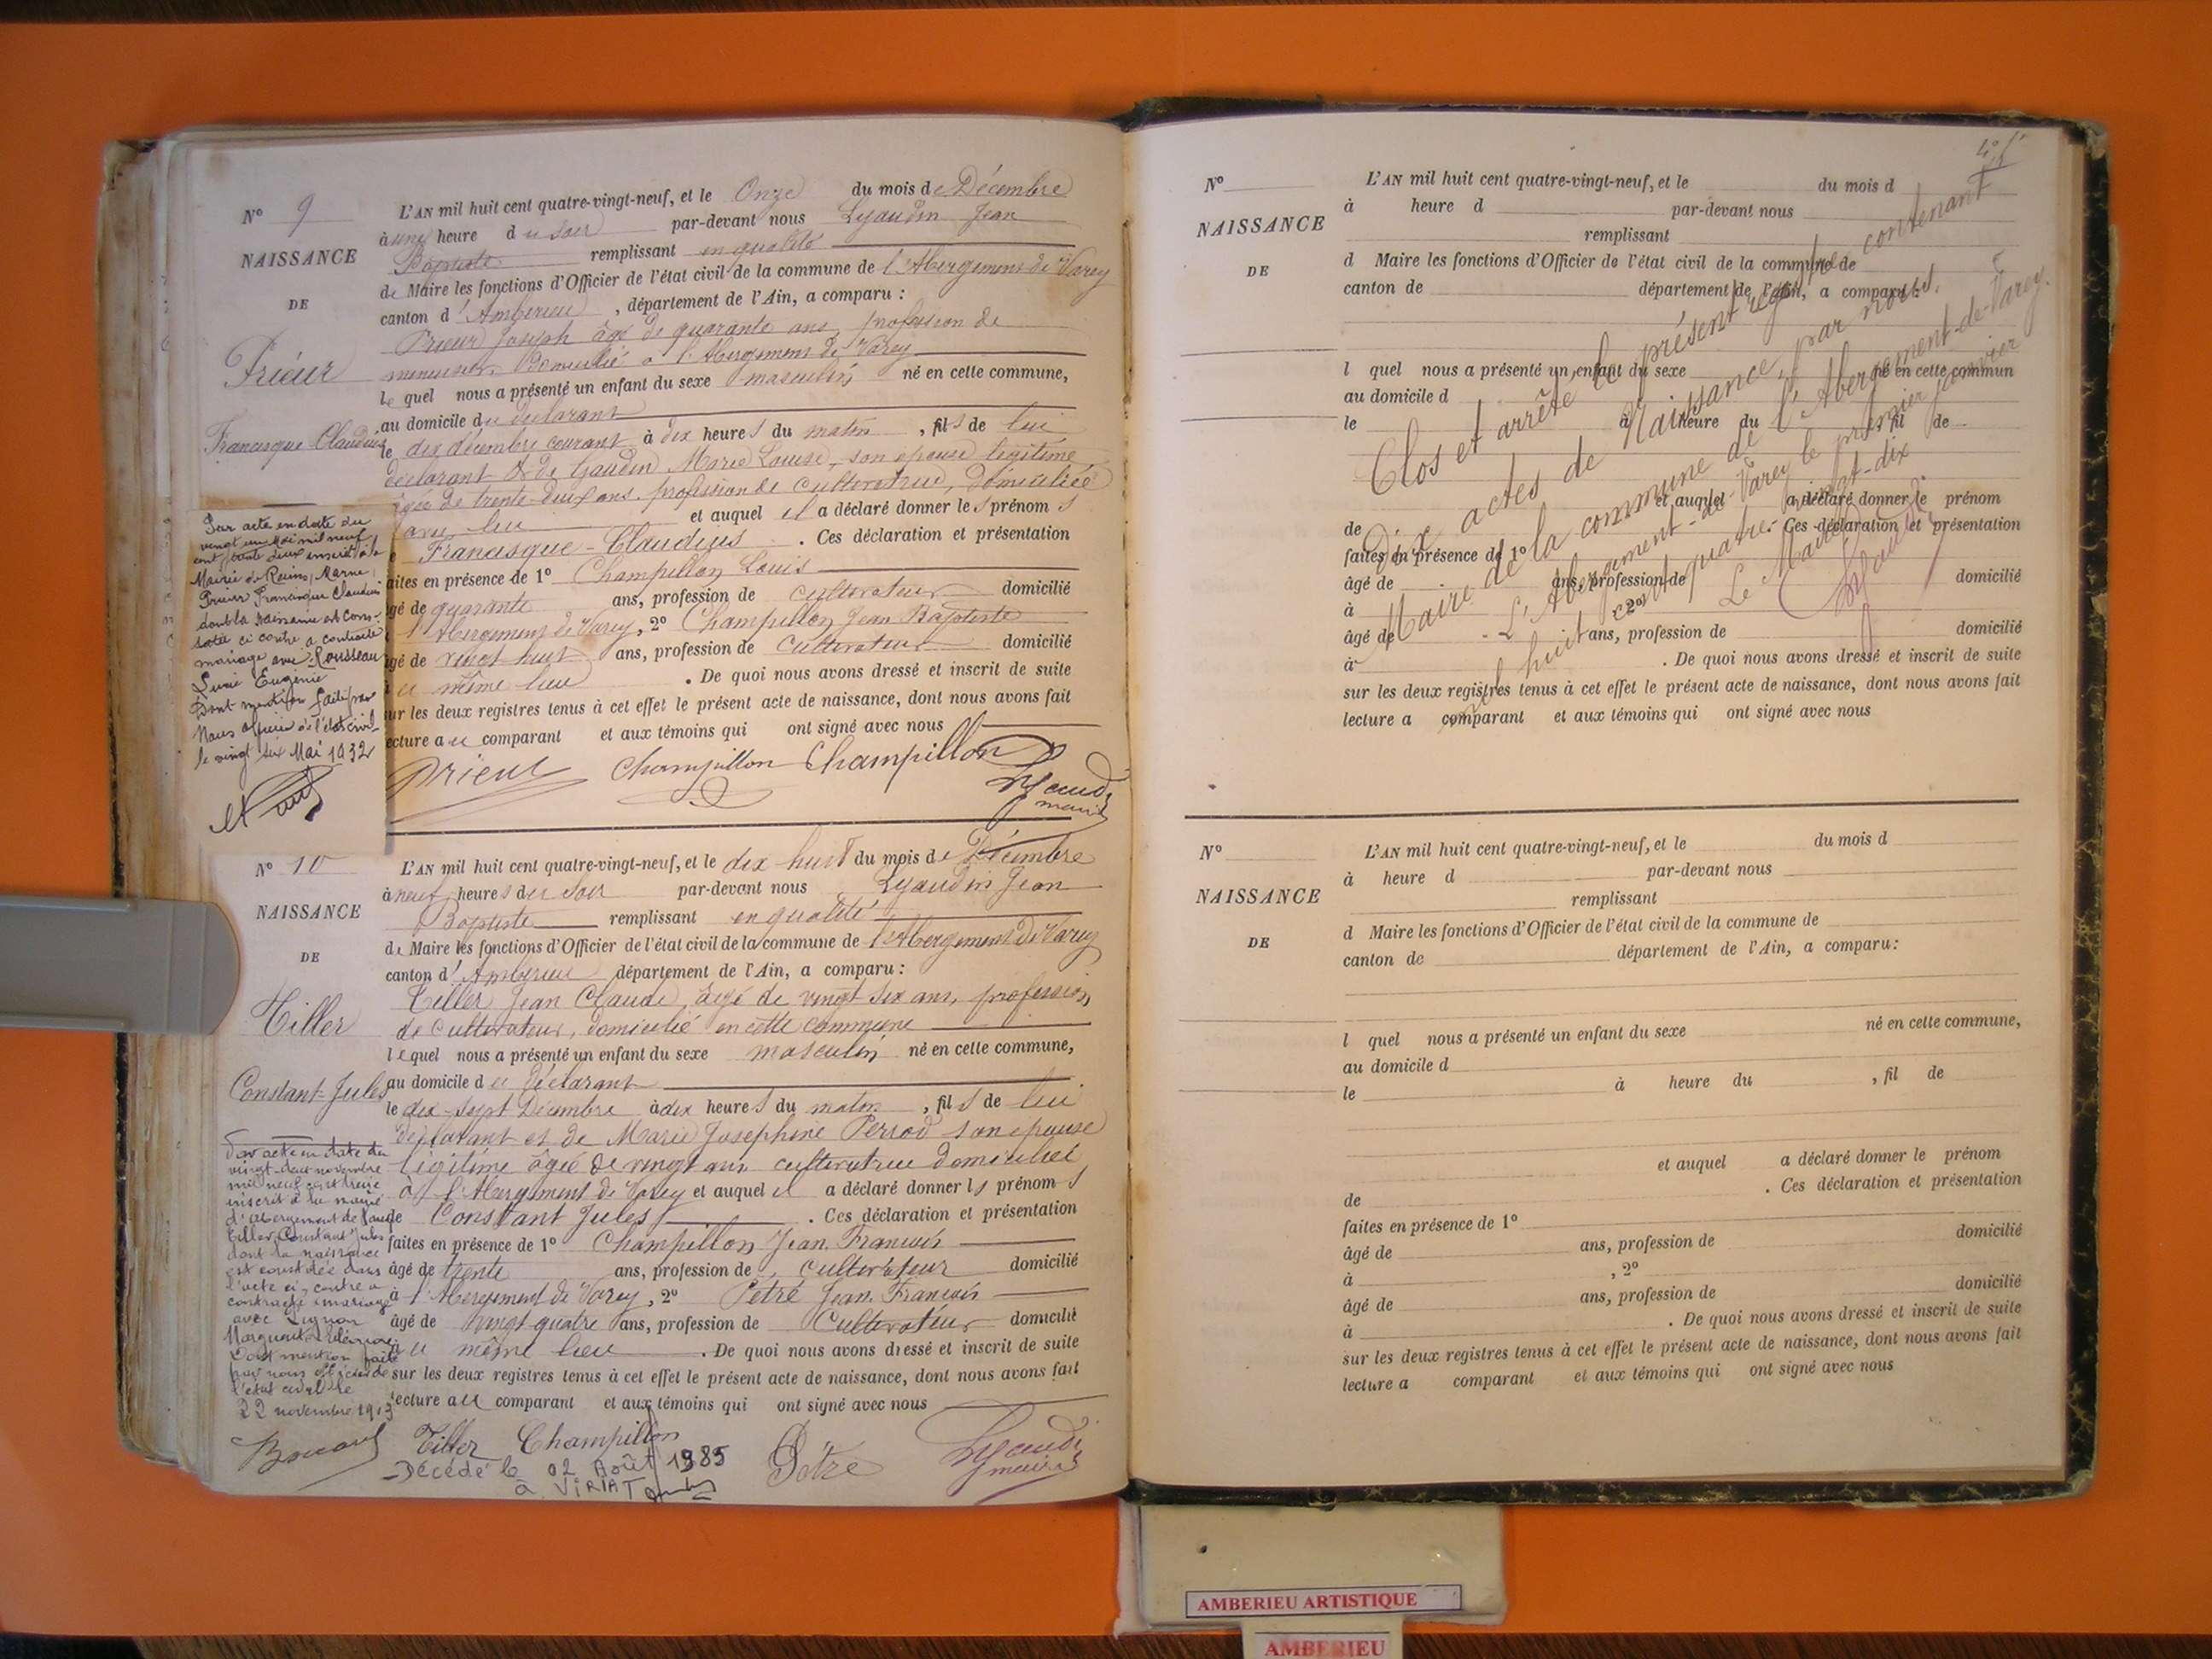 N° 9
NAISSANCE
DE
Prieur
Francisque Claudius
L'AN mil huit cent quatre-vingt-neuf, et le Onze du mois de Décembre
à une heure du soir par-devant nous Lyaudin Jean
Baptiste remplissant en qualité
de Maire les fonctions d'Officier de l'état civil de la commune de l'Abergement de Varey
canton d'Amberieu, département de l'Ain, a comparu :
Prieur Joseph âgé de quarante ans, profession de
menuisier, domicilié à l'Abergement de Varey
lequel nous a présenté un enfant du sexe masculin né en cette commune,
au domicile du déclarant
le dix décembre courant à dix heures du matin, fils de lui
déclarant & de Gaudin Marie Louise, son épouse légitime
âgée de trente-deux ans, profession de cultivatrice, domiciliée
avec lui et auquel il a déclaré donner les prénoms
Francisque-Claudius. Ces déclaration et présentation
faites en présence de 1° Champillon Louis
âgé de quarante ans, profession de cultivateur domicilié
l'Abergement de Varey, 2° Champillon Jean Baptiste
âgé de vingt huit ans, profession de cultivateur domicilié
au même lieu. De quoi nous avons dressé et inscrit de suite
sur les deux registres tenus à cet effet le présent acte de naissance, dont nous avons fait
lecture au comparant et aux témoins qui ont signé avec nous
Prieur Champillon Champillon Lyaudin
maire
Par acte en date du
vingt un Mai mil neuf
cent trente deux inscrit à la
Mairie de Reims, Marne,
Prieur Francisque Claudius
dont la naissance est cons-
tatée ci contre a contracté
mariage avec Rousseau
Lucie Eugénie
Dont mention faite par
Nous officier de l'état civil
le vingt six Mai 1932
N° 10
NAISSANCE
DE
Tiller
Constant-Jules
L'AN mil huit cent quatre-vingt-neuf, et le dix huit du mois de Décembre
à neuf heures du soir par-devant nous Lyaudin Jean
Baptiste remplissant en qualité
de Maire les fonctions d'Officier de l'état civil de la commune de l'Abergement de Varey
canton d'Amberieu département de l'Ain, a comparu :
Tiller Jean Claude, âgé de vingt six ans, profession
de cultivateur, domicilié en cette commune
lequel nous a présenté un enfant du sexe masculin né en cette commune,
au domicile du déclarant
le dix-sept Décembre à dix heures du matin, fils de lui
déclarant et de Marie Josephine Perrod son épouse
légitime âgée de vingt ans cultivatrice domiciliée
à l'Abergement de Varey et auquel il a déclaré donner ls prénoms
de Constant Jules. Ces déclaration et présentation
faites en présence de 1° Champillon Jean François
âgé de trente ans, profession de cultivateur domicilié
à l'Abergement de Varey, 2° Petré Jean François
âgé de vingt quatre ans, profession de Cultivateur domicilié
au même lieu. De quoi nous avons dressé et inscrit de suite
sur les deux registres tenus à cet effet le présent acte de naissance, dont nous avons fait
lecture au comparant et aux témoins qui ont signé avec nous
Tiller Champillon Pétré Lyaudin
maire
Décédé le 02 Août 1985
à VIRIAT
Par acte en date du
vingt-deux novembre
mil neuf cent treize
inscrit à la mairie
d'Abergement de Varey
Tiller Constant Jules
dont la naissance
est constatée dans
l'acte ci-contre a
contracté mariage
avec
Marguerite
Dont mention faite
par nous officier de
l'état civil le
22 novembre 1913
N°
NAISSANCE
DE
L'AN mil huit cent quatre-vingt-neuf, et le du mois d
à heure d par-devant nous
remplissant
d Maire les fonctions d'Officier de l'état civil de la commune de
canton de département de l'Ain, a comparu :
l quel nous a présenté un enfant du sexe né en cette commun
au domicile d
le à heure du , fil de
et auquel a déclaré donner le prénom
de . Ces déclaration et présentation
faites en présence de 1°
âgé de ans, profession de domicilié
à , 2°
âgé de ans, profession de domicilié
à . De quoi nous avons dressé et inscrit de suite
sur les deux registres tenus à cet effet le présent acte de naissance, dont nous avons fait
lecture a comparant et aux témoins qui ont signé avec nous
Clos et arrêté le présent registre contenant
Dix actes de Naissance, par nous,
Maire de la commune de l'Abergement-de-Varey.
L'Abergement-de-Varey le premier janvier
mil huit cent quatre-vingt-dix
Le Maire
Lyaudin
N°
NAISSANCE
DE
L'AN mil huit cent quatre-vingt-neuf, et le du mois d
à heure d par-devant nous
remplissant
d Maire les fonctions d'Officier de l'état civil de la commune de
canton de département de l'Ain, a comparu :
l quel nous a présenté un enfant du sexe né en cette commune,
au domicile d
le à heure du , fil de
et auquel a déclaré donner le prénom
de . Ces déclaration et présentation
faites en présence de 1°
âgé de ans, profession de domicilié
à , 2°
âgé de ans, profession de domicilié
à . De quoi nous avons dressé et inscrit de suite
sur les deux registres tenus à cet effet le présent acte de naissance, dont nous avons fait
lecture a comparant et aux témoins qui ont signé avec nous
AMBERIEU ARTISTIQUE
AMBERIEU